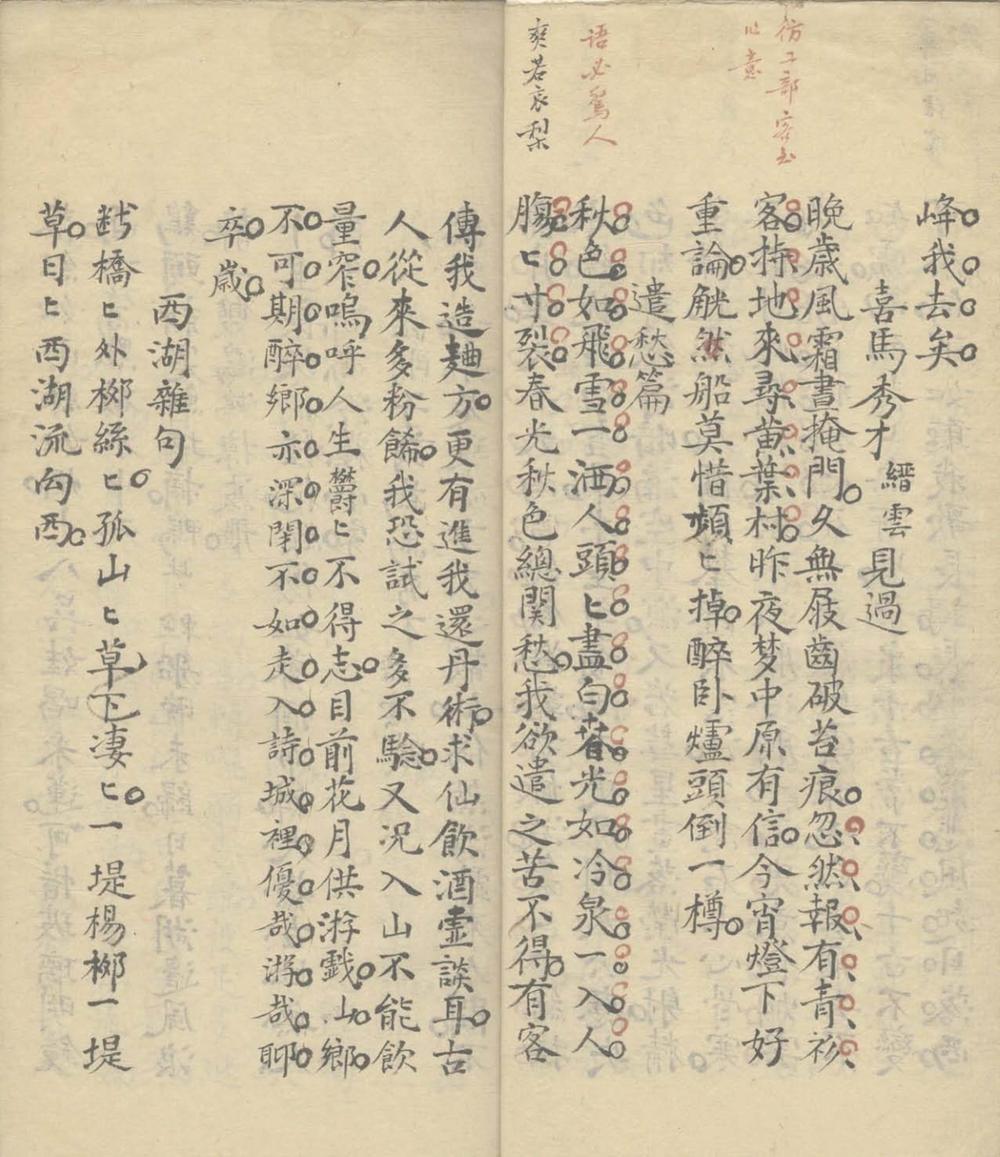 峰我去矣
喜馬秀才縉雲見過
晚歲風霜晝掩門久無屐齒破苔痕忽然報有青衫
客掎地來尋黃葉村昨夜梦中原有信今宵燈下好
重論觥然船莫惜頻〻掉醉卧爐頭倒一樽
遣愁篇
秋色如飛雪一洒人頭〻盡白春光如冷泉一入人
腸〻寸裂春光秋色總関愁我欲遣之苦不得有客
傳我造麯方更有進我還丹術求仙飲酒虗談耳古
人從來多粉餙我恐試之多不驗又况入山不能飲
量窄嗚呼人生欝〻不得志目前花月供游戱山鄉
不可期醉鄉亦深閉不如走入詩城裡優哉游哉聊
卒歲
西湖雜句
斷橋〻外栁絲〻孤山〻下草凄〻一堤楊栁一堤
草日〻西湖流向西
仿工部客至
心意
语必驚人
爽若哀梨